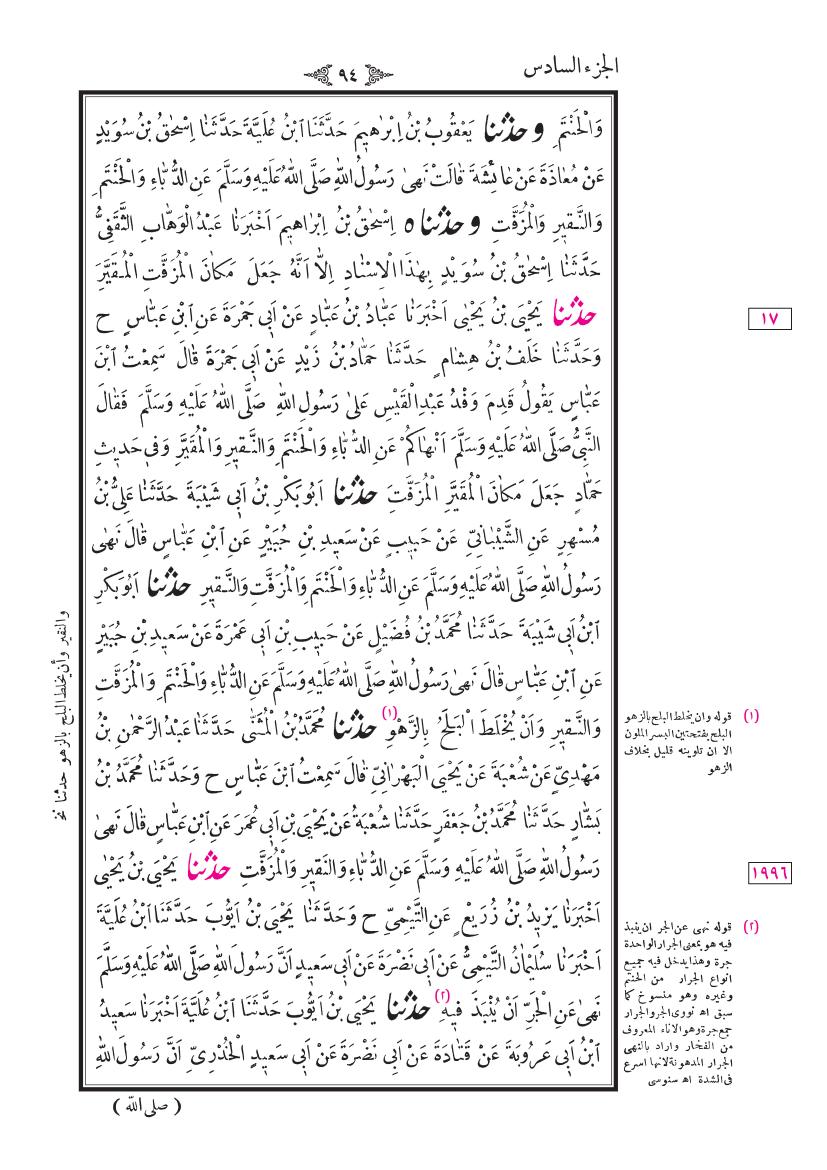 الجزء السادس
٩٤
وَالْحَنْتَمِ وحدثنا يَعْقُوبُ بْنُ اِبْرٰهِيمَ حَدَّثَنَا ابْنُ عُلَيَّةَ حَدَّثَنَا اِسْحٰقُ بْنُ سُوَيْدٍ
عَنْ مُعَاذَةَ عَنْ عَائِشَةَ قَالَتْ نَهٰى رَسُولُ اللّٰهِ صَلَّى اللّٰهُ عَلَيْهِ وَسَلَّمَ عَنِ الدُّبَّاءِ وَالْحَنْتَمِ
وَالنَّقِيرِ وَالْمُزَفَّتِ وحدثناه اِسْحٰقُ بْنُ اِبْرَاهِيمَ اَخْبَرَنَا عَبْدُ الْوَهَّابِ الثَّقَفِىُّ
حَدَّثَنَا اِسْحٰقُ بْنُ سُوَيْدٍ بِهٰذَا الْاِسْنَادِ اِلَّا اَنَّهُ جَعَلَ مَكَانَ الْمُزَفَّتِ الْمُقَيَّرَ
حدثنا يَحْيَى بْنُ يَحْيٰى اَخْبَرَنَا عَبَّادُ بْنُ عَبَّادٍ عَنْ اَبِى جَمْرَةَ عَنِ ابْنِ عَبَّاسٍ ح
وَحَدَّثَنَا خَلَفُ بْنُ هِشَامٍ حَدَّثَنَا حَمَّادُ بْنُ زَيْدٍ عَنْ اَبِى جَمْرَةَ قَالَ سَمِعْتُ ابْنَ
عَبَّاسٍ يَقُولُ قَدِمَ وَفْدُ عَبْدِ الْقَيْسِ عَلٰى رَسُولِ اللّٰهِ صَلَّى اللّٰهُ عَلَيْهِ وَسَلَّمَ فَقَالَ
النَّبِىُّ صَلَّى اللّٰهُ عَلَيْهِ وَسَلَّمَ اَنْهَاكُمْ عَنِ الدُّبَّاءِ وَالْحَنْتَمِ وَالنَّقِيرِ وَالْمُقَيَّرِ وَفِى حَدِيثِ
حَمَّادٍ جَعَلَ مَكَانَ الْمُقَيَّرِ الْمُزَفَّتِ حدثنا اَبُو بَكْرِ بْنُ اَبِى شَيْبَةَ حَدَّثَنَا عَلِىُّ بْنُ
مُسْهِرٍ عَنِ الشَّيْبَانِىِّ عَنْ حَبِيبٍ عَنْ سَعِيدِ بْنِ جُبَيْرٍ عَنِ ابْنِ عَبَّاسٍ قَالَ نَهٰى
رَسُولُ اللّٰهِ صَلَّى اللّٰهُ عَلَيْهِ وَسَلَّمَ عَنِ الدُّبَّاءِ وَالْحَنْتَمِ وَالْمُزَفَّتِ وَالنَّقِيرِ حدثنا اَبُو بَكْرِ
ابْنُ اَبِى شَيْبَةَ حَدَّثَنَا مُحَمَّدُ بْنُ فُضَيْلٍ عَنْ حَبِيبِ بْنِ اَبِى عَمْرَةَ عَنْ سَعِيدِ بْنِ جُبَيْرٍ
عَنِ ابْنِ عَبَّاسٍ قَالَ نَهٰى رَسُولُ اللّٰهِ صَلَّى اللّٰهُ عَلَيْهِ وَسَلَّمَ عَنِ الدُّبَّاءِ وَالْحَنْتَمِ وَالْمُزَفَّتِ
وَالنَّقِيرِ وَاَنْ يُخْلَطَ الْبَلَحُ بِالزَّهْوِ (١) حدثنا مُحَمَّدُ بْنُ الْمُثَنَّى حَدَّثَنَا عَبْدُ الرَّحْمٰنِ بْنُ
مَهْدِىٍّ عَنْ شُعْبَةَ عَنْ يَحْيَى الْبَهْرَانِىِّ قَالَ سَمِعْتُ ابْنَ عَبَّاسٍ ح وَحَدَّثَنَا مُحَمَّدُ بْنُ
بَشَّارٍ حَدَّثَنَا مُحَمَّدُ بْنُ جَعْفَرٍ حَدَّثَنَا شُعْبَةُ عَنْ يَحْيَى بْنِ اَبِى عُمَرَ عَنِ ابْنِ عَبَّاسٍ قَالَ نَهٰى
رَسُولُ اللّٰهِ صَلَّى اللّٰهُ عَلَيْهِ وَسَلَّمَ عَنِ الدُّبَّاءِ وَالنَّقِيرِ وَالْمُزَفَّتِ حدثنا يَحْيَى بْنُ يَحْيٰى
اَخْبَرَنَا يَزِيدُ بْنُ زُرَيْعٍ عَنِ التَّيْمِىِّ ح وَحَدَّثَنَا يَحْيَى بْنُ اَيُّوبَ حَدَّثَنَا ابْنُ عُلَيَّةَ
اَخْبَرَنَا سُلَيْمَانُ التَّيْمِىُّ عَنْ اَبِى نَضْرَةَ عَنْ اَبِى سَعِيدٍ اَنَّ رَسُولَ اللّٰهِ صَلَّى اللّٰهُ عَلَيْهِ وَسَلَّمَ
نَهٰى عَنِ الْجَرِّ اَنْ يُنْبَذَ فِيهِ (٢) حدثنا يَحْيَى بْنُ اَيُّوبَ حَدَّثَنَا ابْنُ عُلَيَّةَ اَخْبَرَنَا سَعِيدُ
ابْنُ اَبِى عَرُوبَةَ عَنْ قَتَادَةَ عَنْ اَبِى نَضْرَةَ عَنْ اَبِى سَعِيدٍ الْخُدْرِىِّ اَنَّ رَسُولَ اللّٰهِ
( صلى الله )
١٧
(١) قوله وان يخلط البلح بالزهو
البلح بفتحتين البسر الملون
الا ان تلوينه قليل بخلاف
الزهو
١٩٩٦
(٢) قوله نهى عن الجر ان ينبذ
فيه هو بمعنى الجرار الواحدة
جرة وهذا يدخل فيه جميع
انواع الجرار من الحنتم
وغيره وهو منسوخ كما
سبق اه نووى الجر والجرار
جمع جرة وهو الاناء المعروف
من الفخار واراد بالنهى
الجرار المدهونة لانها اسرع
فى الشدة اه سنوسى
والنقير وأن يخلط البلح بالزهو حدثنا نخ